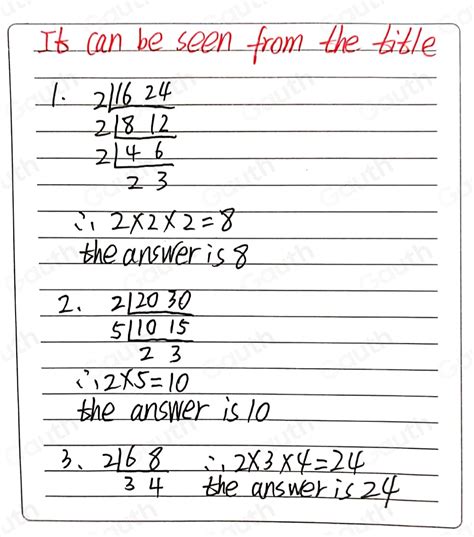 It can be seen from the title
1. 2|16 24
2|8 12
2|4 6
2 3
∴ 2×2×2=8
the answer is 8
2. 2|20 30
5|10 15
2 3
∴ 2×5=10
the answer is 10
3. 2|6 8 ∴ 2×3×4=24
3 4 the answer is 24